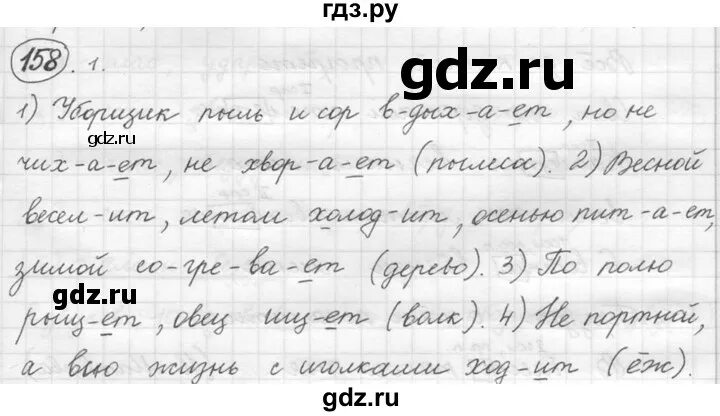 гдз.ру
158. 1.
gdz.ru
1) Уборщик пыль и сор в-дых-а-ет, но не
чих-а-ет, не хвор-а-ет (пылесос). 2) Весной
весел-ит, летом холод-ит, осенью пит-а-ет,
зимой со-гре-ва-ет (дерево). 3) По полю
gdz.ru
рыщ-ет, овец ищ-ет (волк). 4) Не портной,
а всю жизнь с иголками ход-ит (ёж).
gdz.ru